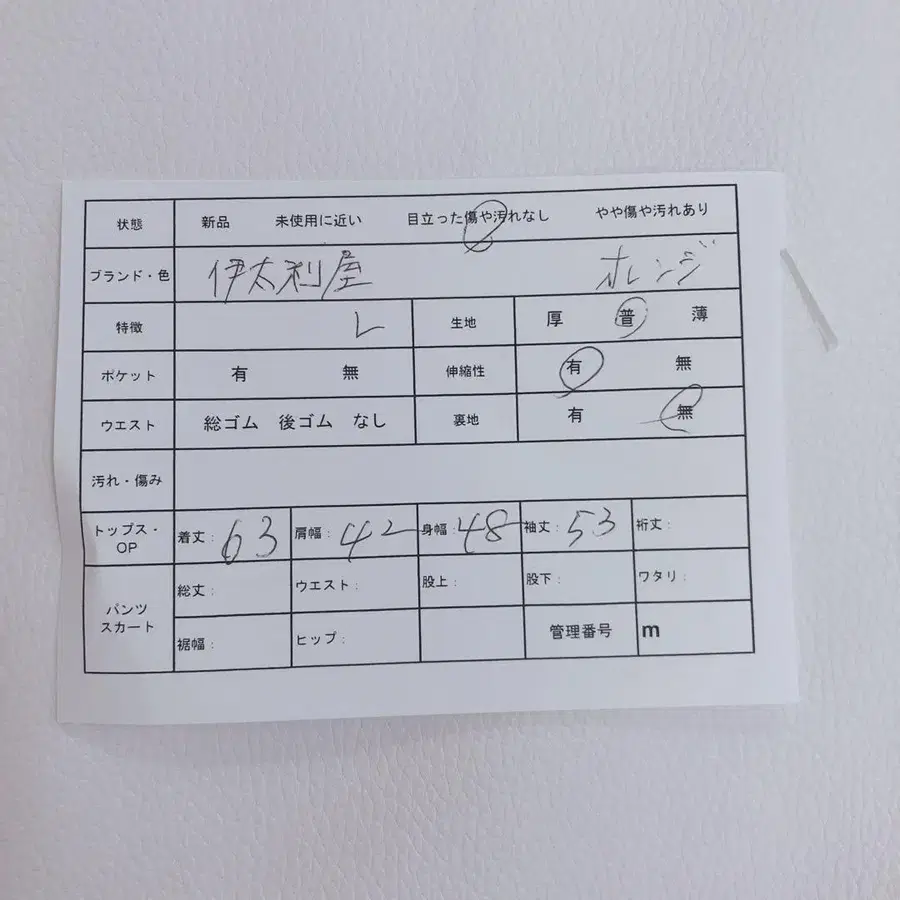 状態 新品 未使用に近い 目立った傷や汚れなし やや傷や汚れあり
ブランド・色 伊太利屋 オレンジ
特徴 L 生地 厚 普 薄
ポケット 有 無 伸縮性 有 無
ウエスト 総ゴム 後ゴム なし 裏地 有 無
汚れ・傷み
トップス・OP 着丈: 63 肩幅: 42 身幅: 48 袖丈: 53 裄丈:
パンツ スカート 総丈: ウエスト: 股上: 股下: ワタリ:
裾幅: ヒップ: 管理番号 m